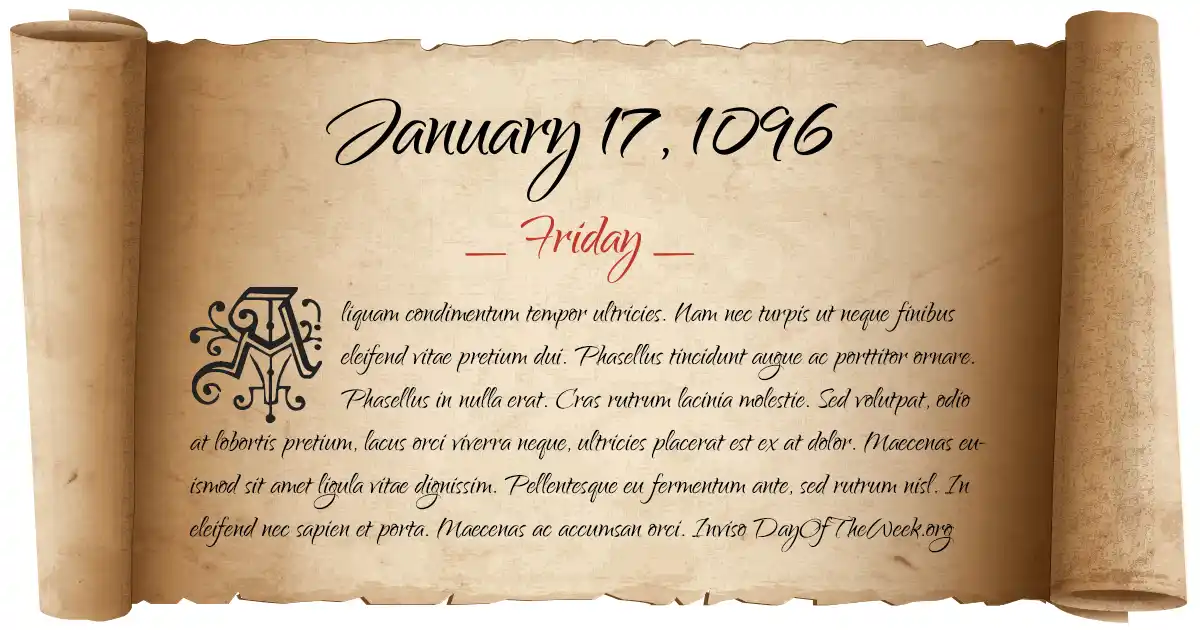 January 17, 1096
— Friday —
Aliquam condimentum tempor ultricies. Nam nec turpis ut neque finibus
eleifend vitae pretium dui. Phasellus tincidunt augue ac porttitor ornare.
Phasellus in nulla erat. Cras rutrum lacinia molestie. Sed volutpat, odio
at lobortis pretium, lacus orci viverra neque, ultricies placerat est ex at dolor. Maecenas eu-
ismod sit amet ligula vitae dignissim. Pellentesque eu fermentum ante, sed rutrum nisl. In
eleifend nec sapien et porta. Maecenas ac accumsan orci. Inviso DayOfTheWeek.org